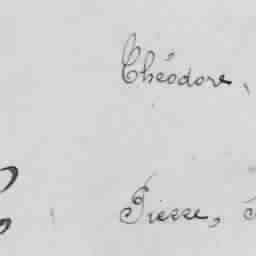 Théodore,
Pierre,